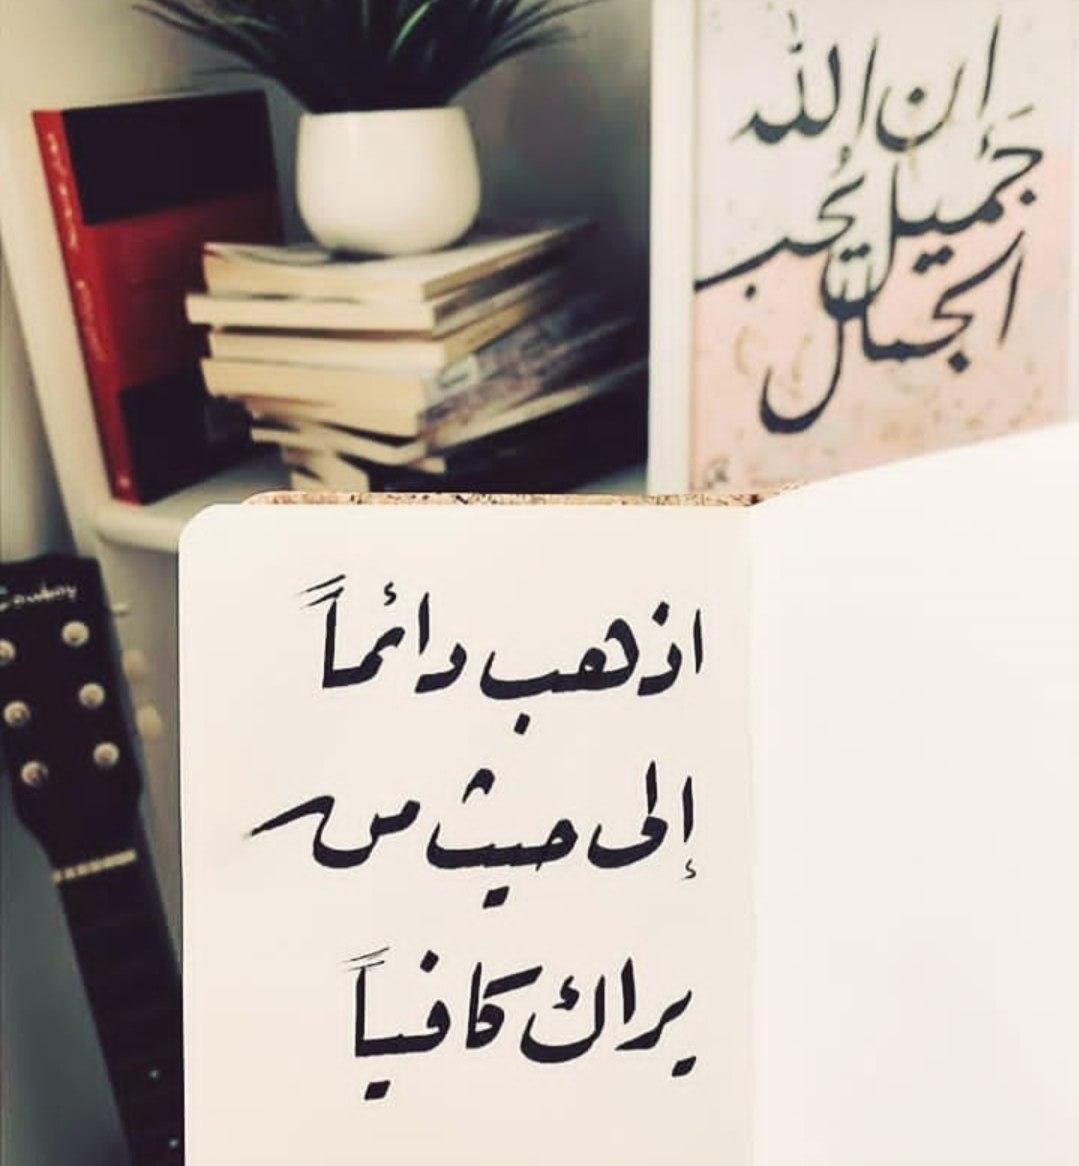 ان الله
جَميل يُحب
الجمال
Cowboy
اذهب دائماً
إلى حيث من
يراك كافياً